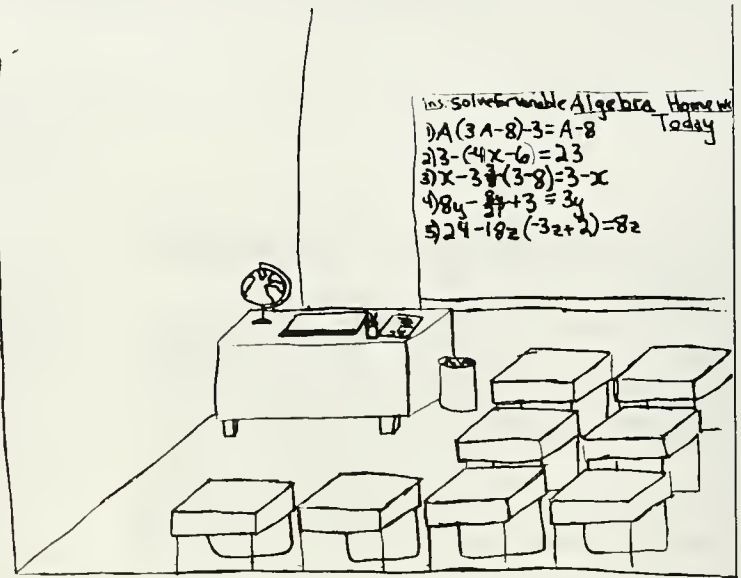 ins. solve for variable Algebra Home wk
Today
1) A (3A-8)-3 = A-8
2) 3-(4x-6) = 23
3) x-3 (3-8)=3-x
4) 8y - +3 = 3y
5) 24-18z (-3z+2)=8z